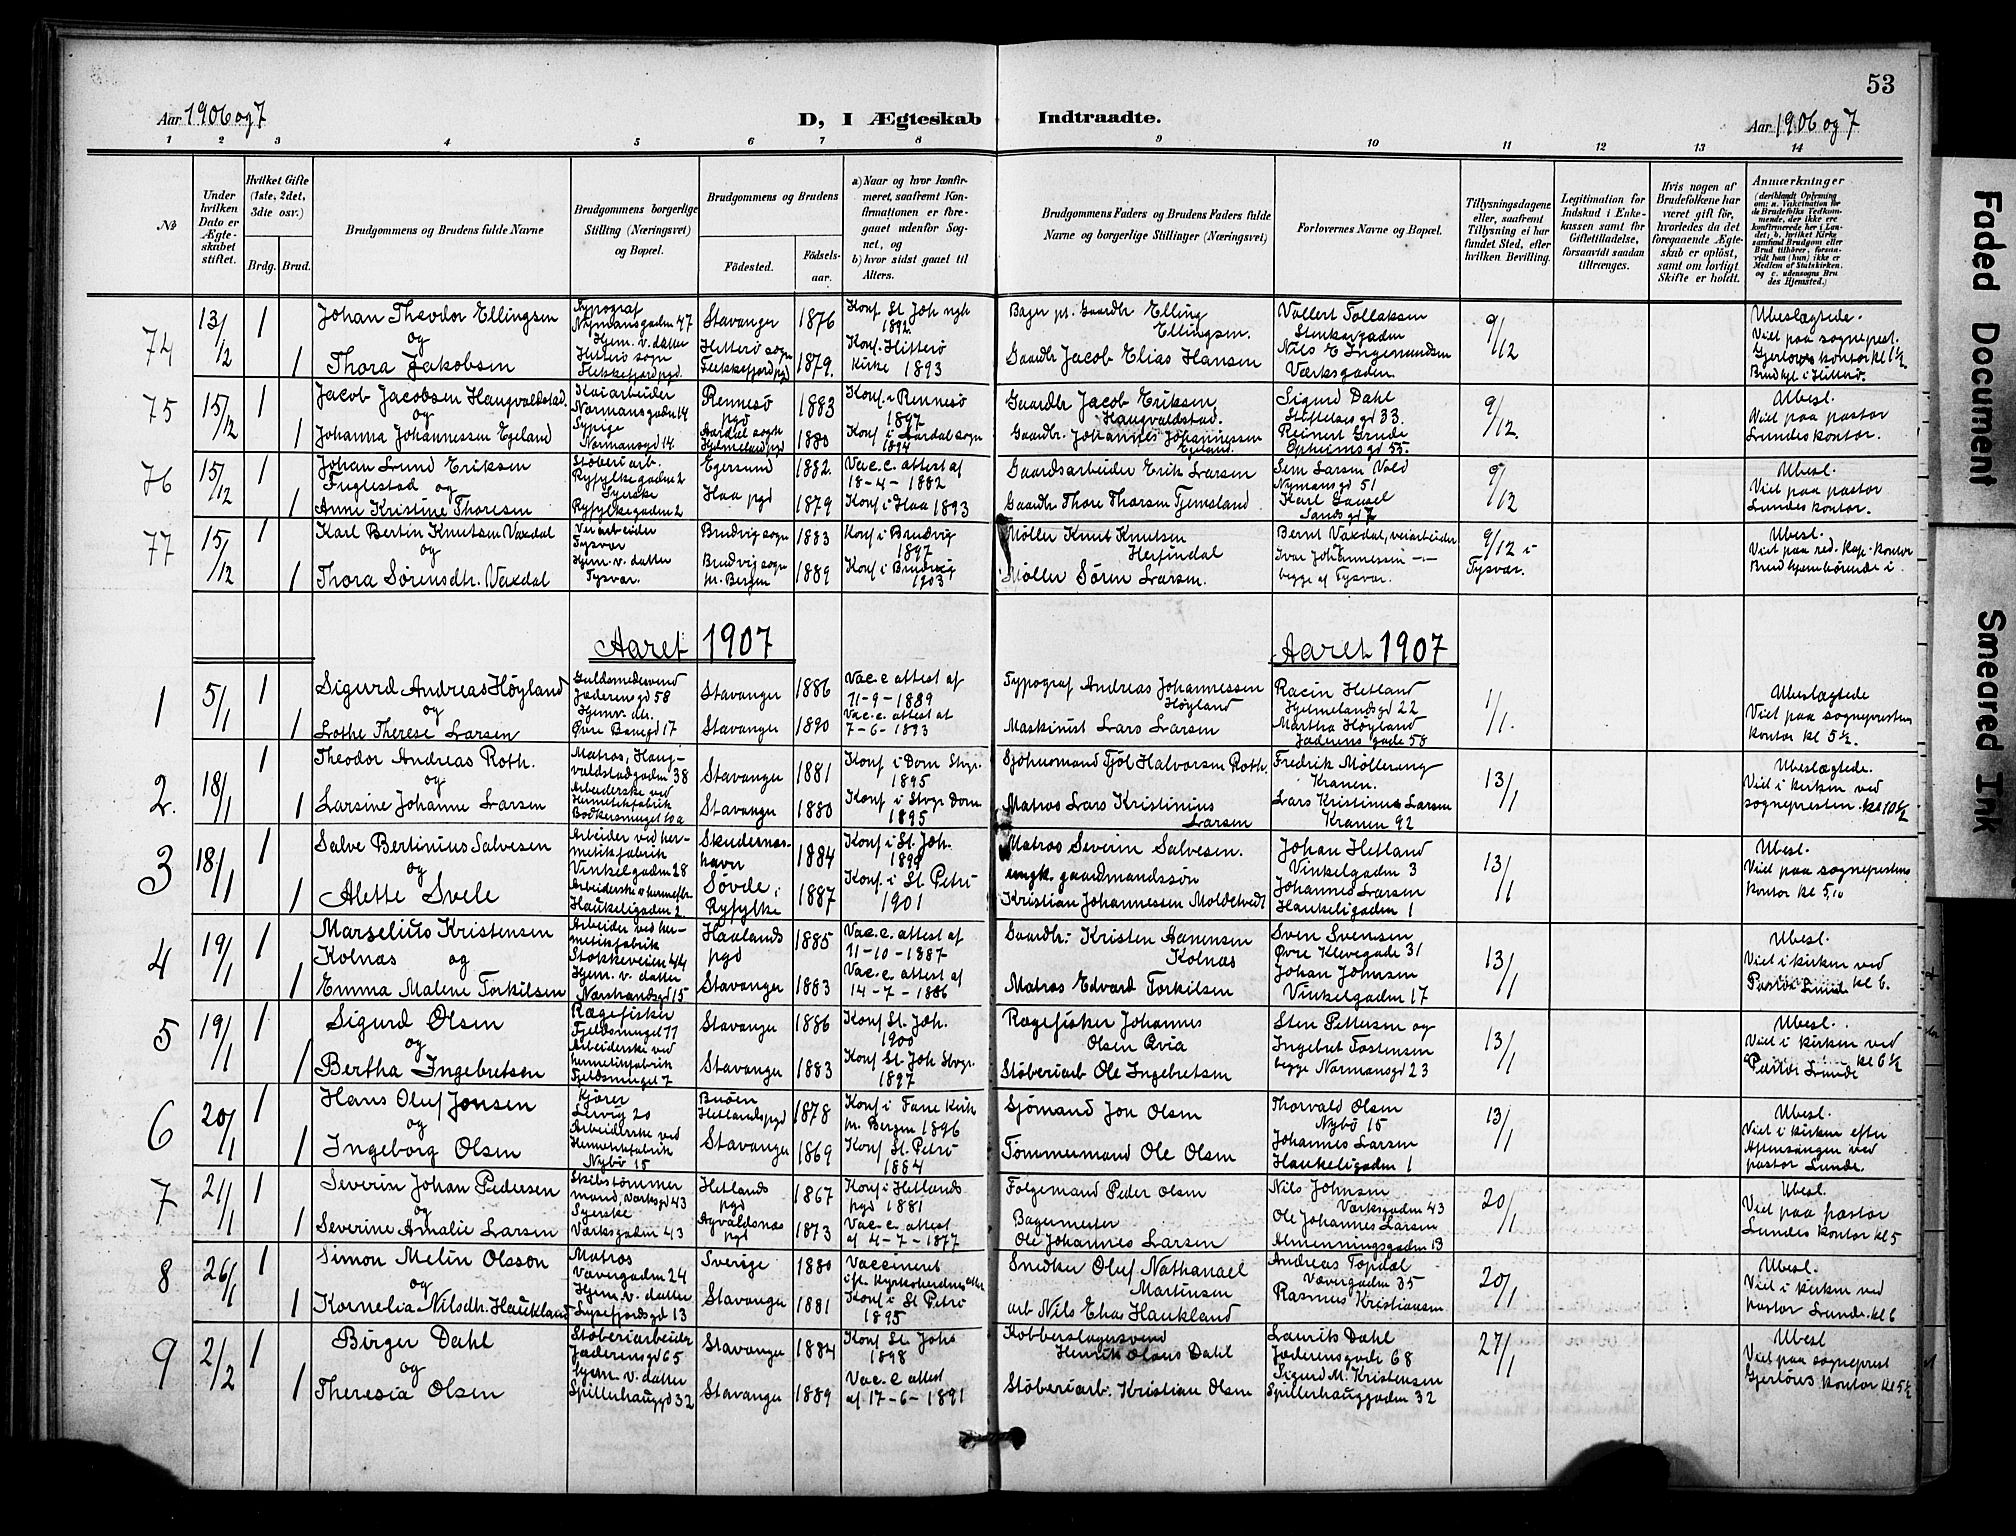 53
Aar 1906 og 7
D, I Ægteskab Indtraadte.
Aar 1906 og 7
1 2 3 4 5 6 7 8 9 10 11 12 13 14
No
Under hvilken Dato er Ægteskabet stiftet.
Hvilket Gifte (1ste, 2det, 3die osv.)
Brdg. Brud.
Brudgommens og Brudens fulde Navne
Brudgommens borgerlige Stilling (Næringsvei) og Bopæl.
Brudgommens og Brudens
Fødested. Fødselsaar.
a) Naar og hvor konfirmeret, saafremt Konfirmationen er foregaaet udenfor Sognet, og
b) hvor sidst gaaet til Alters.
Brudgommens Faders og Brudens Faders fulde Navne og borgerlige Stillinger (Næringsvei)
Forlovernes Navne og Bopæl.
Tillysningsdagene eller, saafremt Tillysning ei har fundet Sted, efter hvilken Bevilling.
Legitimation for Indskud i Enkekassen samt for Giftetilladelse, forsaavidt saadan tiltrænges.
Hvis nogen af Brudefolkene har været gift før, hvorledes da det foregaaende Ægteskab er opløst, samt om lovligt Skifte er holdt.
Anmærkninger
(deriblandt Oplysning om: a. Vakcination for de Brudefolks Vedkommende, der ikke ere konfirmerede her i Landet; b. hvilket Kirkesamfund Brudgom eller Brud tilhører, forsaavidt han (hun) ikke er Medlem af Statskirken, og c. udensogns Brudes Hjemsted.)
74 13/12 1 Johan Theodor Ellingsen Typograf Nymansgaden 47 Stavanger 1876 Konf St Joh ngk 1892 Bagn pt. Gaardbr Elling Ellingsen. Vollert Tollaksen Stenkargaden 9/12 Ubeslægtede.
og Viet paa sognepræst.
1 Thora Jakobsen Hjem. v. datter Hitterø sogn Flekkefjord pgd. Hitterø sogn Flekkefjord pgd 1879. Konf. Hitterø Kirke 1893 Gaardbr Jacob Elias Hansen Nils E Ingemundsen Værksgaden. Gjerløws kontor kl 1½
75 15/12 1 Jacob Jacobsen Haugvaldstad. Kaiarbeider Normansgaden 14 Rennesø pgd 1883 Konf. i Rennesø 1897 Gaardbr Jacob Eriksen Haugvaldstad. Sigurd Dahl Stiftelsesgd 33. 9/12. Ubesl.
og Viet paa pastor
1 Johanna Johannessen Egeland Sypige Normansgd 14. Aardal sogn Hjelmeland pgd 1880 Konf i Aardal sogn 1894 Gaardbr. Johannes Johannessen Egeland. Reinert Grude Opheimsgd 55. Lundes kontor.
76 15/12 1 Johan Lund Eriksen Støberiarb. Ryfylkegaden 2 Egersund 1882. Vac. c. attest af 18-4-1882 Gaardsarbeider Erik Larsen Sem Larsen Vold Nymansgd 51 9/12 Ubesl.
Fuglestad og Viet paa pastor
1 Anne Kristine Thoresen Syerske Ryfylkegaden 2 Haa pgd 1879 Konf i Haa 1893 Gaardbr Thore Thorsen Tjemsland Karl Gausel Sandsgd 7 Lundes kontor.
77 15/12 1 Karl Bertin Knutsen Vaxdal Veiarbeider Tysvær Bruvig sogn 1883 Konf i Bruvig 1897 Møller Knut Knutsen Herfindal Bernt Vaxdal, veiarbeider 9/12 i Tysvær. Ubesl.
og Viet paa red. kap. kontor
1 Thora Sørensdtr. Vaxdal Hjem. v. datter Tysvær. Bruvig sogn n. Bergen 1889 Konf i Bruvig 1903 Møller Søren Larsen. Ivar Johannessen — begge af Tysvær. Brud hjemhørende i
Aaret 1907 Aaret 1907
1 5/1 1 Sigurd Andreas Høyland Guldsmedsvend Jæderensgd 58 Stavanger 1886 Vac. c attest af 11-9-1889 Typograf Andreas Johannessen Høyland Racin Hetland Hjelmelandsgd 22 1/1. Ubeslægtede
og Viet paa sognepresten
1 Lothe Therese Larsen Hjemv. dtr. Øvre Banegd 17 Stavanger 1890 Vac. c. attest af 7-6-1893 Maskinist Lars Larsen Martha Høyland Jæderens gade 58 kontor kl 5½.
2. 18/1 1 Theodor Andreas Roth. Matros, Haugvaldstadgaden 38 Stavanger 1881 Konf i Dom Stvgr. 1895 Sjøhusmand Tjøl Halvorsen Roth. Fredrik Möllerung Kranen. 13/1 Ubeslægtede.
og Viet i kirken ved
1 Larsine Johanne Larsen Arbeiderske ved Hermetikfabrik Bødkersmuget 10a Stavanger 1880 Konf i Stvgr Dom 1895 Matros Lars Kristinius Larsen Lars Kristinus Larsen Kranen 92 sognepresten. kl 10½
3 18/1 1 Salve Bertinius Salvesen Arbeider ved hermetikfabrik Vinkelgaden 28 Skudesneshavn 1884 Konf i St. Joh. 1899 Matros Severin Salvesen. Johan Hetland Vinkelgaden 3 13/1 Ubesl.
og Viet paa sognepresten
1 Alette Svele Arbeiderske v hermefbr. Haukeligaden 2 Søvde i Ryfylke 1887 Konf. i St. Petri 1901 ungk. gaardmandssøn Kristian Johannessen Moldetvedt Johannes Larsen Haukeligaden 1 kontor kl 5,10
4 19/1 1 Marselius Kristensen Arbeider ved hermetikfabrik Stokkeveien 44 Haalands pgd 1885 Vac. c. attest af 11-10-1887 Gaardbr. Kristen Aanensen Kolnæs Sven Svensen Øvre Klevegade 31 13/1 Ubesl.
Kolnæs og Viet i kirken ved
1 Emma Malene Torkilsen Hjem. v. datter Nærstrandsgd 15 Stavanger 1883 Vac. c. attest af 14-7-1886 Matros Edvard Torkilsen Johan Johnsen Vinkelgaden 17 Pastor Lunde kl 6.
5 19/1 1 Sigurd Olsen Rægefisker Fjeldsmuget 11 Stavanger 1886 Konf St. Joh. 1900 Rægefisker Johannes Olsen Qvia Sten Pettersen og 13/1 Ubesl.
og Viet i kirken ved
1 Bertha Ingebretsen Arbeiderske ved hermetikfabrik Fjeldsmuget 7 Stavanger 1883 Konf St. Joh Stvgr. 1897 Støberiarb Ole Ingebretsen Ingebret Tostensen begge Normansgd 23 Pastor Lunde kl 6½
6 20/1 1 Hans Oluf Jonsen Kjører Lervig 20 Buøen Hetlands pgd 1878 Konf i Fane Kirk n. Bergen 1896 Sjømand Jon Olsen Thorvald Olsen Nybö 15 13/1 Ubesl.
og Viet i kirken efter
1 Ingeborg Olsen Arbeiderske ved Hermetikfabrik Nybö 15 Stavanger 1869 Konf St. Petri 1884 Tømmermand Ole Olsen Johannes Larsen Haukeligaden 1 Aftensangen ved pastor Lunde.
7 21/1 1 Severin Johan Pedersen Skibstømmermand, Værksgd 43 Hetlands pgd 1867 Konf i Hetlands pgd 1881 Følgemand Peder Olsen Nils Johnsen Værksgaden 43 20/1 Ubesl.
og Viet paa pastor
1 Severine Amalie Larsen Syerske Værksgaden 43 Agvaldsnæs pgd 1873 Vac. c. attest af 4-7-1877 Bagermester Ole Johannes Larsen Ole Johannes Larsen Almenningsgaden 13 Lundes kontor kl 5
8 26/1 1 Simon Melin Olsson Matros Vævergaden 24 Sverige 1880 Vaccineret Snedker Oluf Nathanael Martinsen Andreas Topdal Vævergaden 35 20/1 Ubesl.
og Viet i kirken ved
1 Kornelia Nilsdtr. Haukland Hjem. v. datter Lysefjordsgd 13 Stavanger 1881 Konf i St Petri 1895 arb Nils Elias Haukland Rasmus Kristiansen pastor Lunde. kl 6
9 2/2 1 Birger Dahl Støberiarbeider Jæderensgd 65 Stavanger 1884 Konf St. Johs 1898 Kobberslagersvend Henrik Olaus Dahl Laurits Dahl Jæderensgade 68 27/1 Ubesl
og Viet paa sogneprest
1 Theresia Olsen hjem. v. datter Spillerhauggd 32 Stavanger 1889 Vac. c attest af 17-6-1891 Støberiarb. Kristian Olsen Sigurd M. Kristensen Spillerhauggaden 32 Gjerløws kontor kl 5½
Faded Document
Smeared Ink